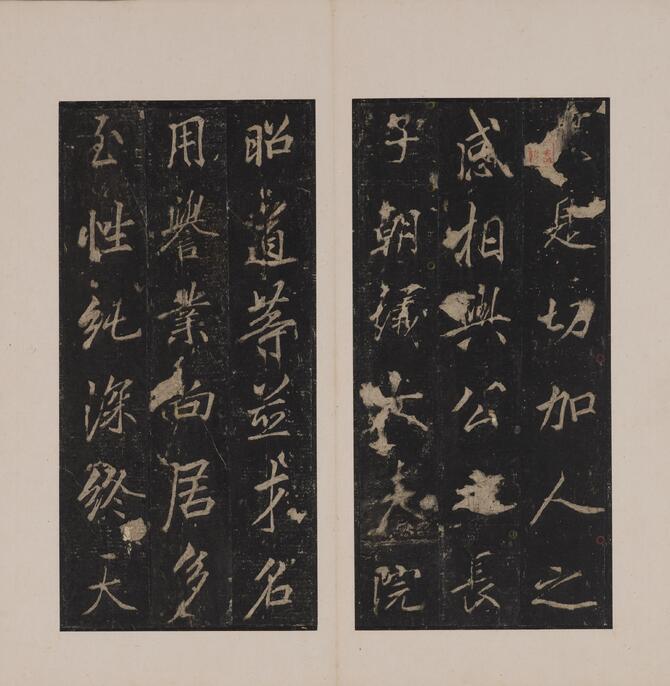 是切加人之
感相與公長
子朝議大夫院
昭道等並才名
用譽業尚居多
至性純深終天